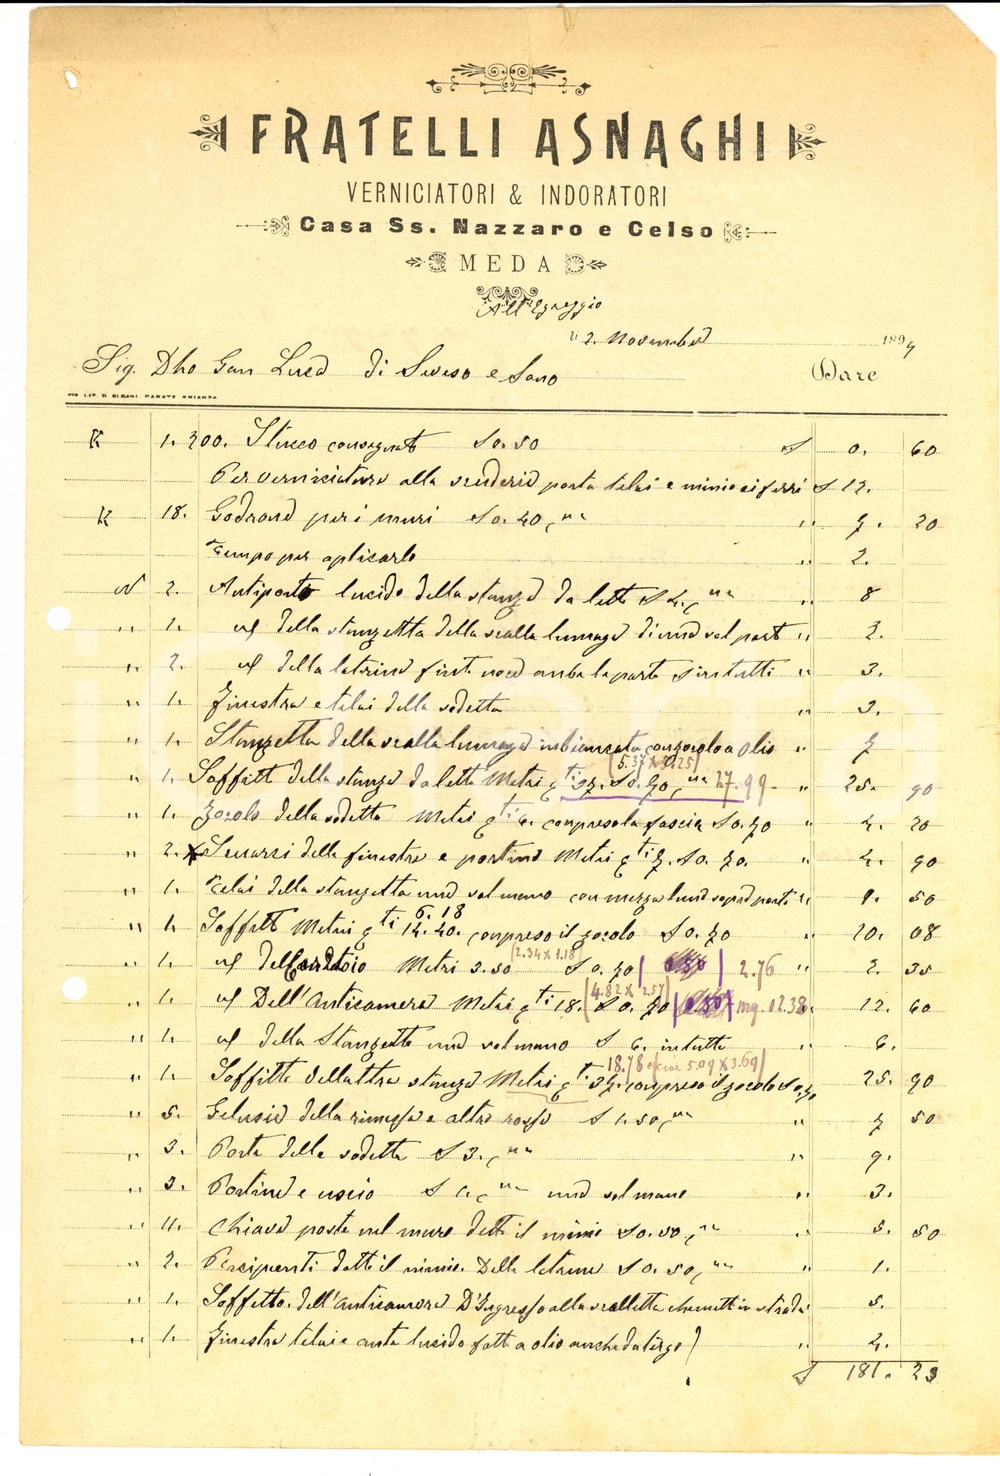 FRATELLI ASNAGHI
VERNICIATORI & INDORATORI
Casa Ss. Nazzaro e Celso
MEDA
All'Egreggio
2. November 1894
Sig. Dho Gan Luca di Seveso e Sono Dare
K 1. 300. Stucco consegnato £ 0.50 £ 0. 60
Per verniciature alla scuderia porta telai e minio ai ferri £ 12.
K 18. Godrond per i muri £ 0.40 " 7. 20
Tempo per aplicarlo " 2.
N 2. Antiporto lucido della stanza da lett £ 4. " 8
" 1. id della stanzetta della scalla lumaga " 2.
" 2. id della latrina finta noce ambe la parta in tutti " 3.
" 1. Finestra e telai della sodetta " 3.
" 1. Stanzetta della scalla lumaga imbiancata con zocolo a olio " 7
(5.37 X 5.25)
" 1. Soffitt della stanza da lett Metri q.ti 37. £ 0.70 27.99 " 25. 90
" 1. Zocolo della sodetta Metri q.ti 6. compreso la fascia £ 0.70 " 4. 20
" 2. Scuarsi della finestra e portina Metri q.ti 7. £ 0. 70. " 4. 90
" 1. Telai della stanzetta una sol mano con mezza luna sopra porta " 1. 50
6. 18
" 1. Soffitt Metri q.ti 14.40. compreso il zocolo £ 0.70 " 10. 08
(2.34 X 1.18)
" 1. id del Corritoio Metri 3.50 £ 0.70 2.76 " 2. 35
(4.82 X 2.57)
" 1. id Dell'Anticamera Metri q.ti 18. £ 0. 70 mq. 12.38 12. 60
" 1. id della Stanzetta una sol mano £ 6. in tutto 6.
18.78 5.09 X 3.69
" 1. Soffitto dell altra stanza Metri q.ti 37. compreso il zocolo £ 0.70 25. 90
" 5. Gelosia della rimessa e altro rosso £ 1.50 " 7 50
" 3. Porta della sodetta £ 3. " 9.
" 3. Portina e uscio £ 1. una sol mano " 3.
" 11. Chiavi poste nel muro dett il minio £ 0.50 " 5. 50
" 2. Recipienti datti il minio. Della latrina £ 0.50 " 1.
" 1. Soffitto. dell'Anticamera D'Ingresso alla scalletta 5.
" 1. Finestra telai e anta lucido fatt a olio anche da tergo " 4.
£ 181. 23